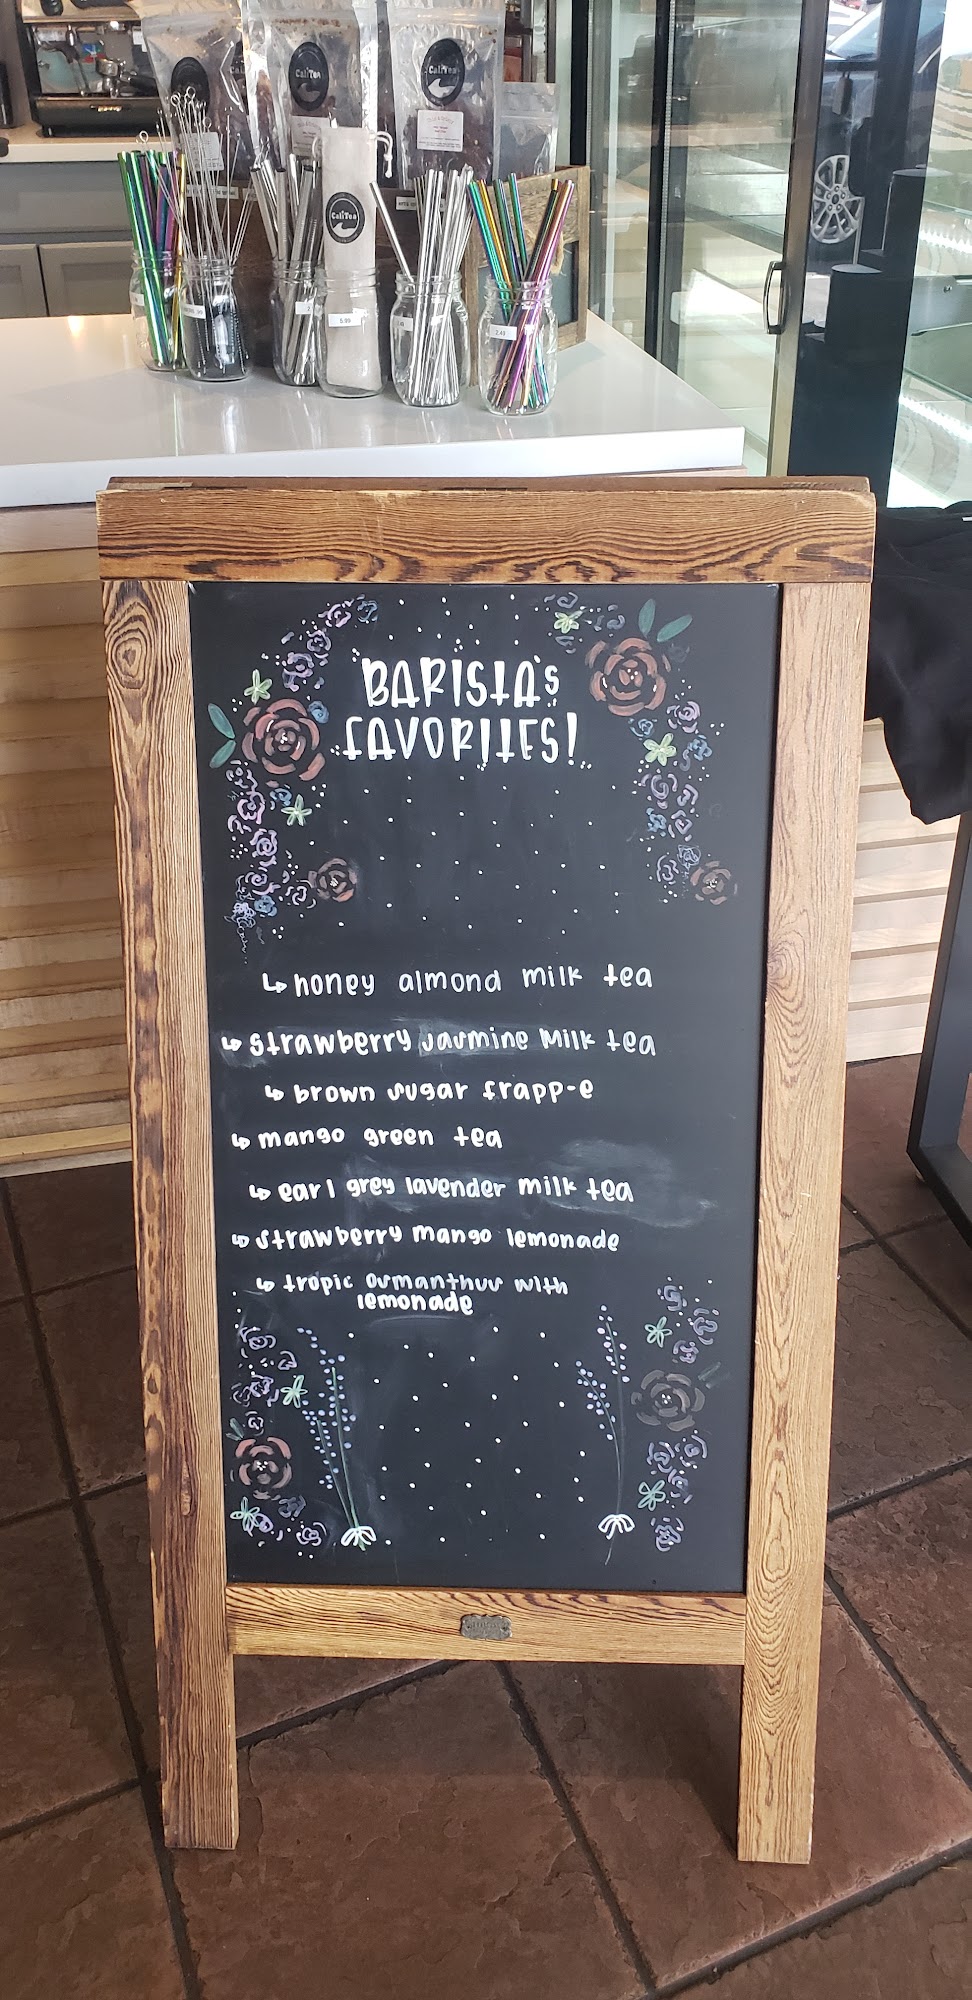 CaliTea
CaliTea
CaliTea
5.99
2.49
BARISTA'S
FAVORITES!
↳ honey almond milk tea
↳ strawberry jasmine milk tea
↳ brown sugar frapp-e
↳ mango green tea
↳ earl grey lavender milk tea
↳ strawberry mango lemonade
↳ tropic osmanthus with
lemonade